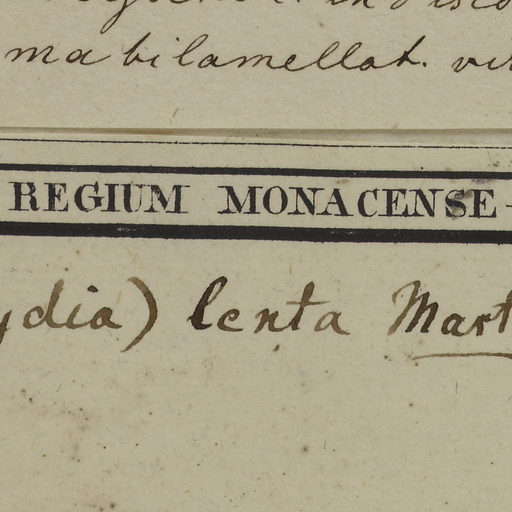 ma bilamellat.
REGIUM MONACENSE
ydia) lenta Mart